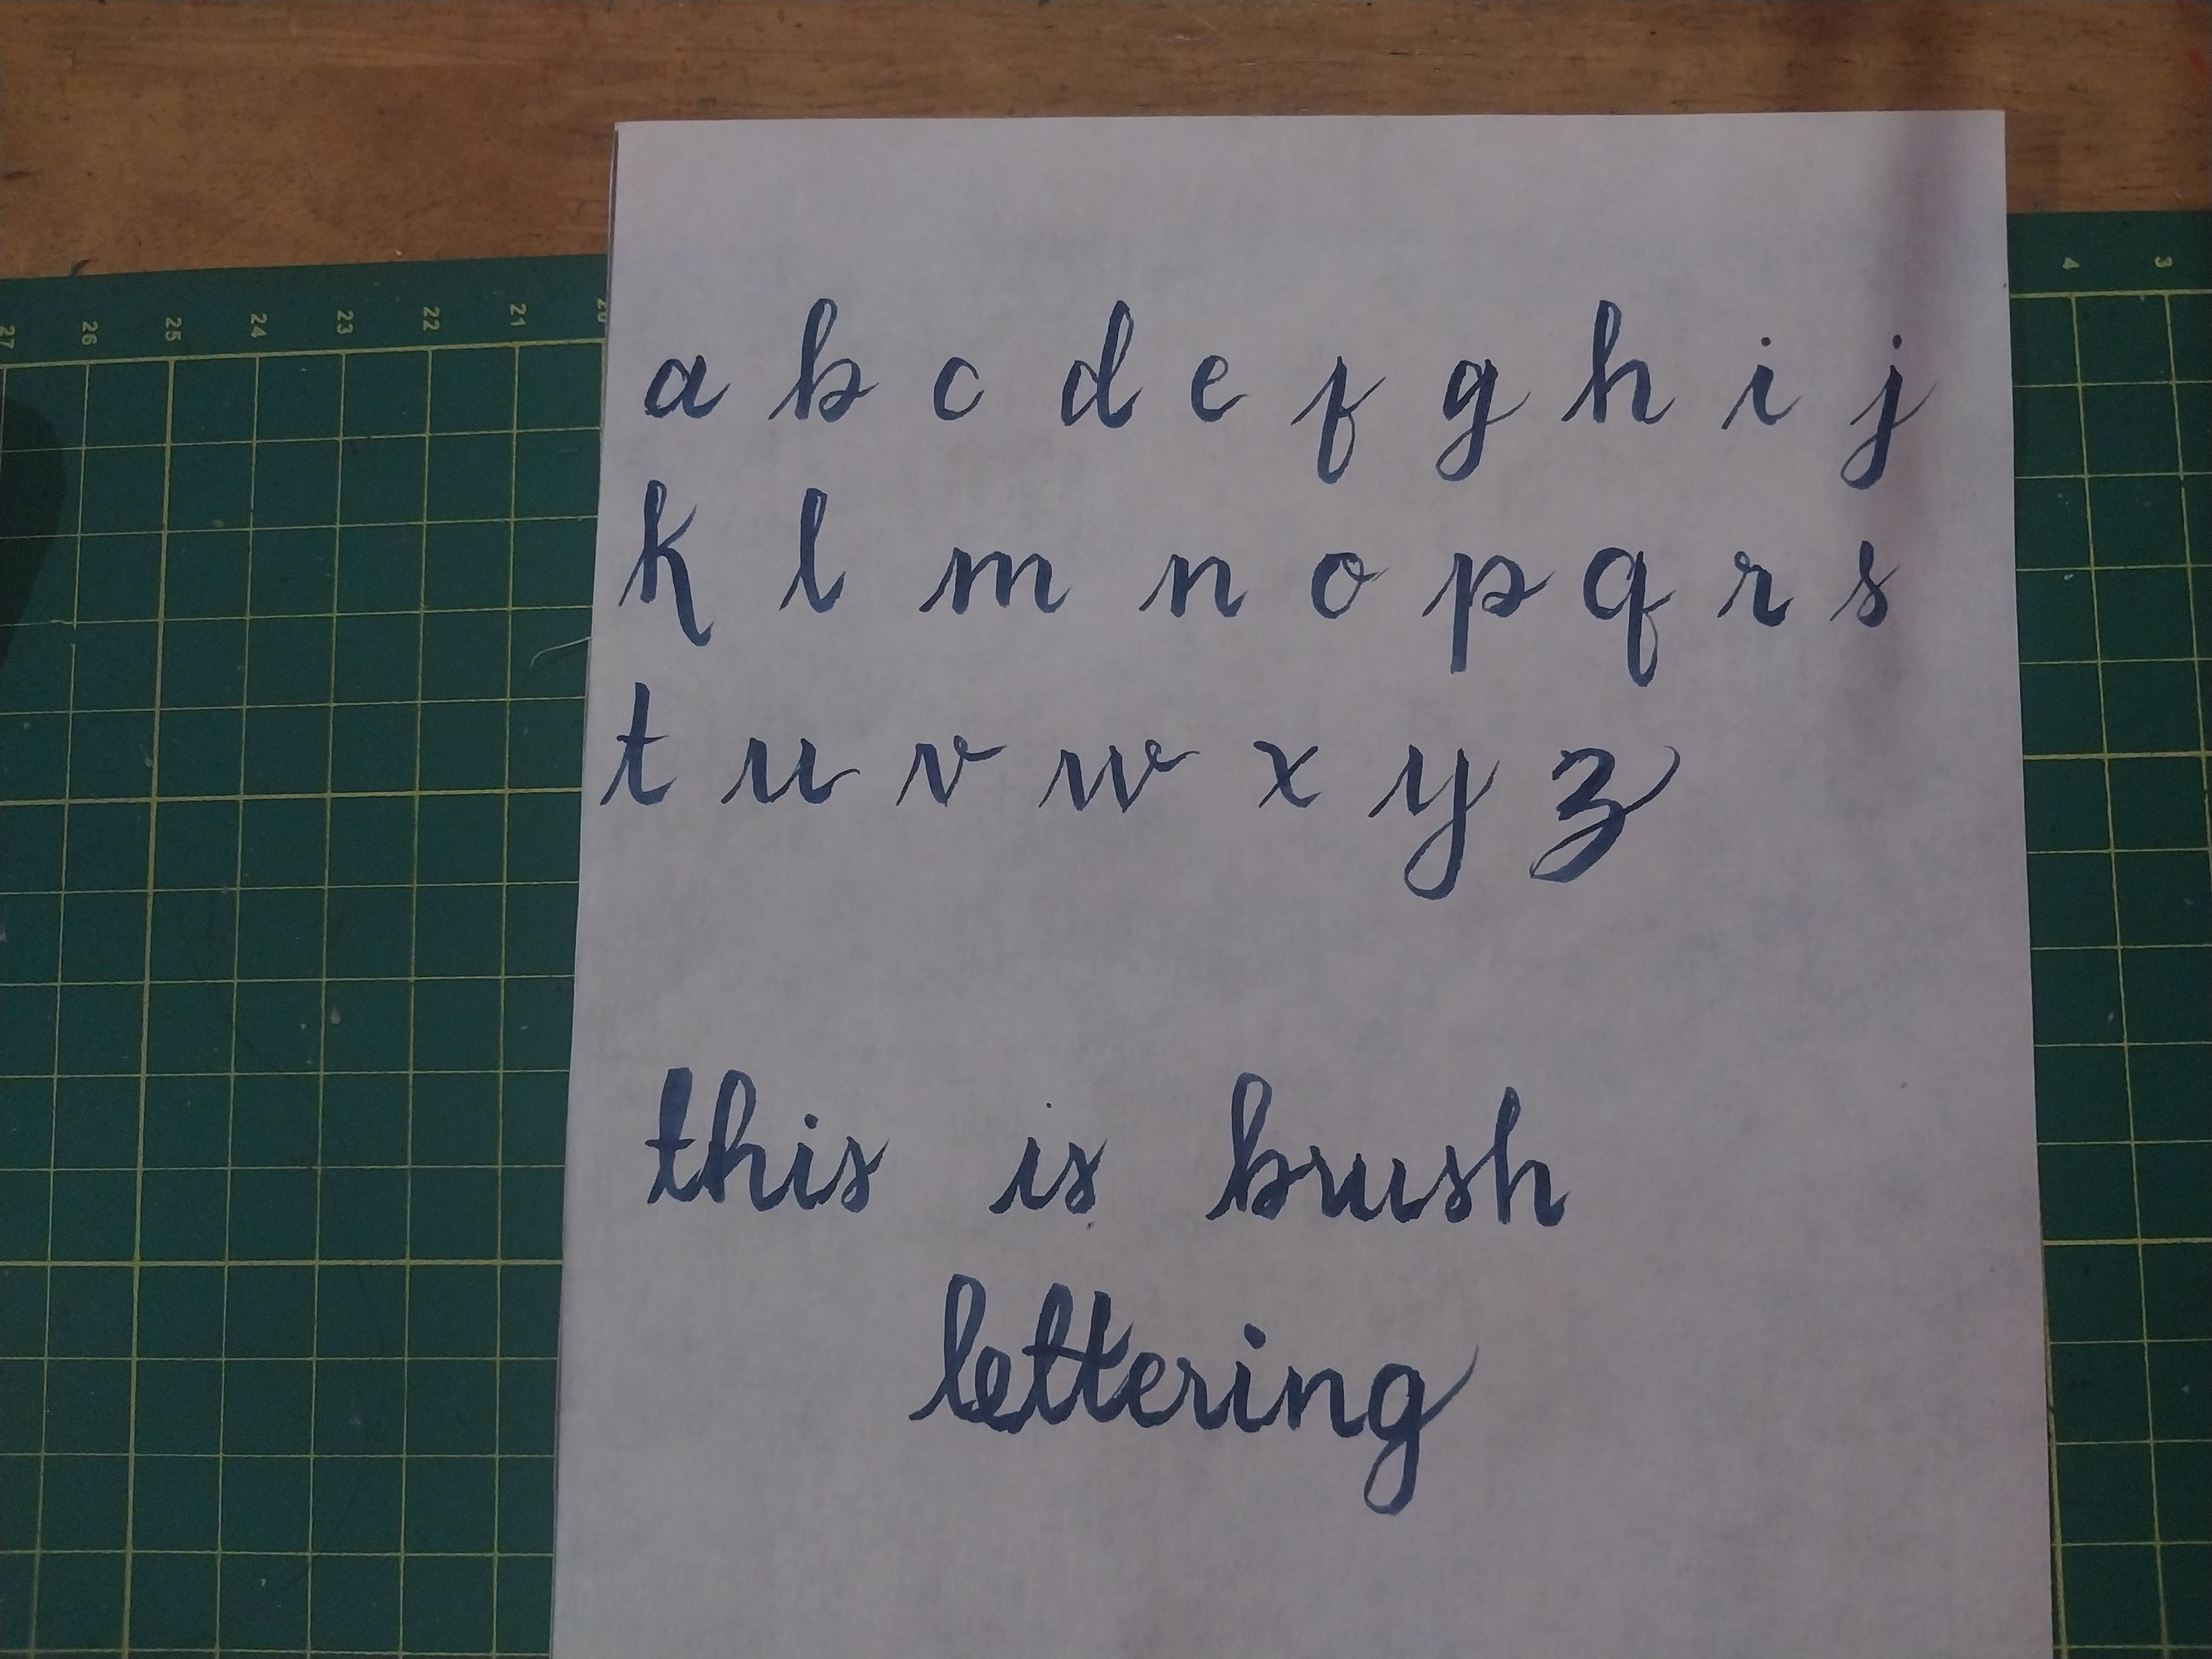 27 26 25 24 23 22 21 20 4 3
a b c d e f g h i j
k l m n o p q r s
t u v w x y z
this is brush
lettering